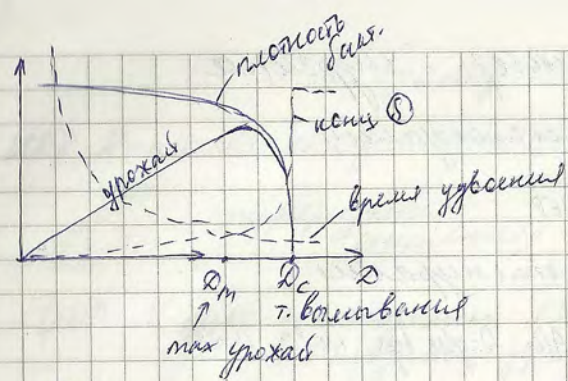 плотность
бакт.
конц Ⓢ
урожай
время удвоения
Dm
Dc
D
т. вымывания
max урожай